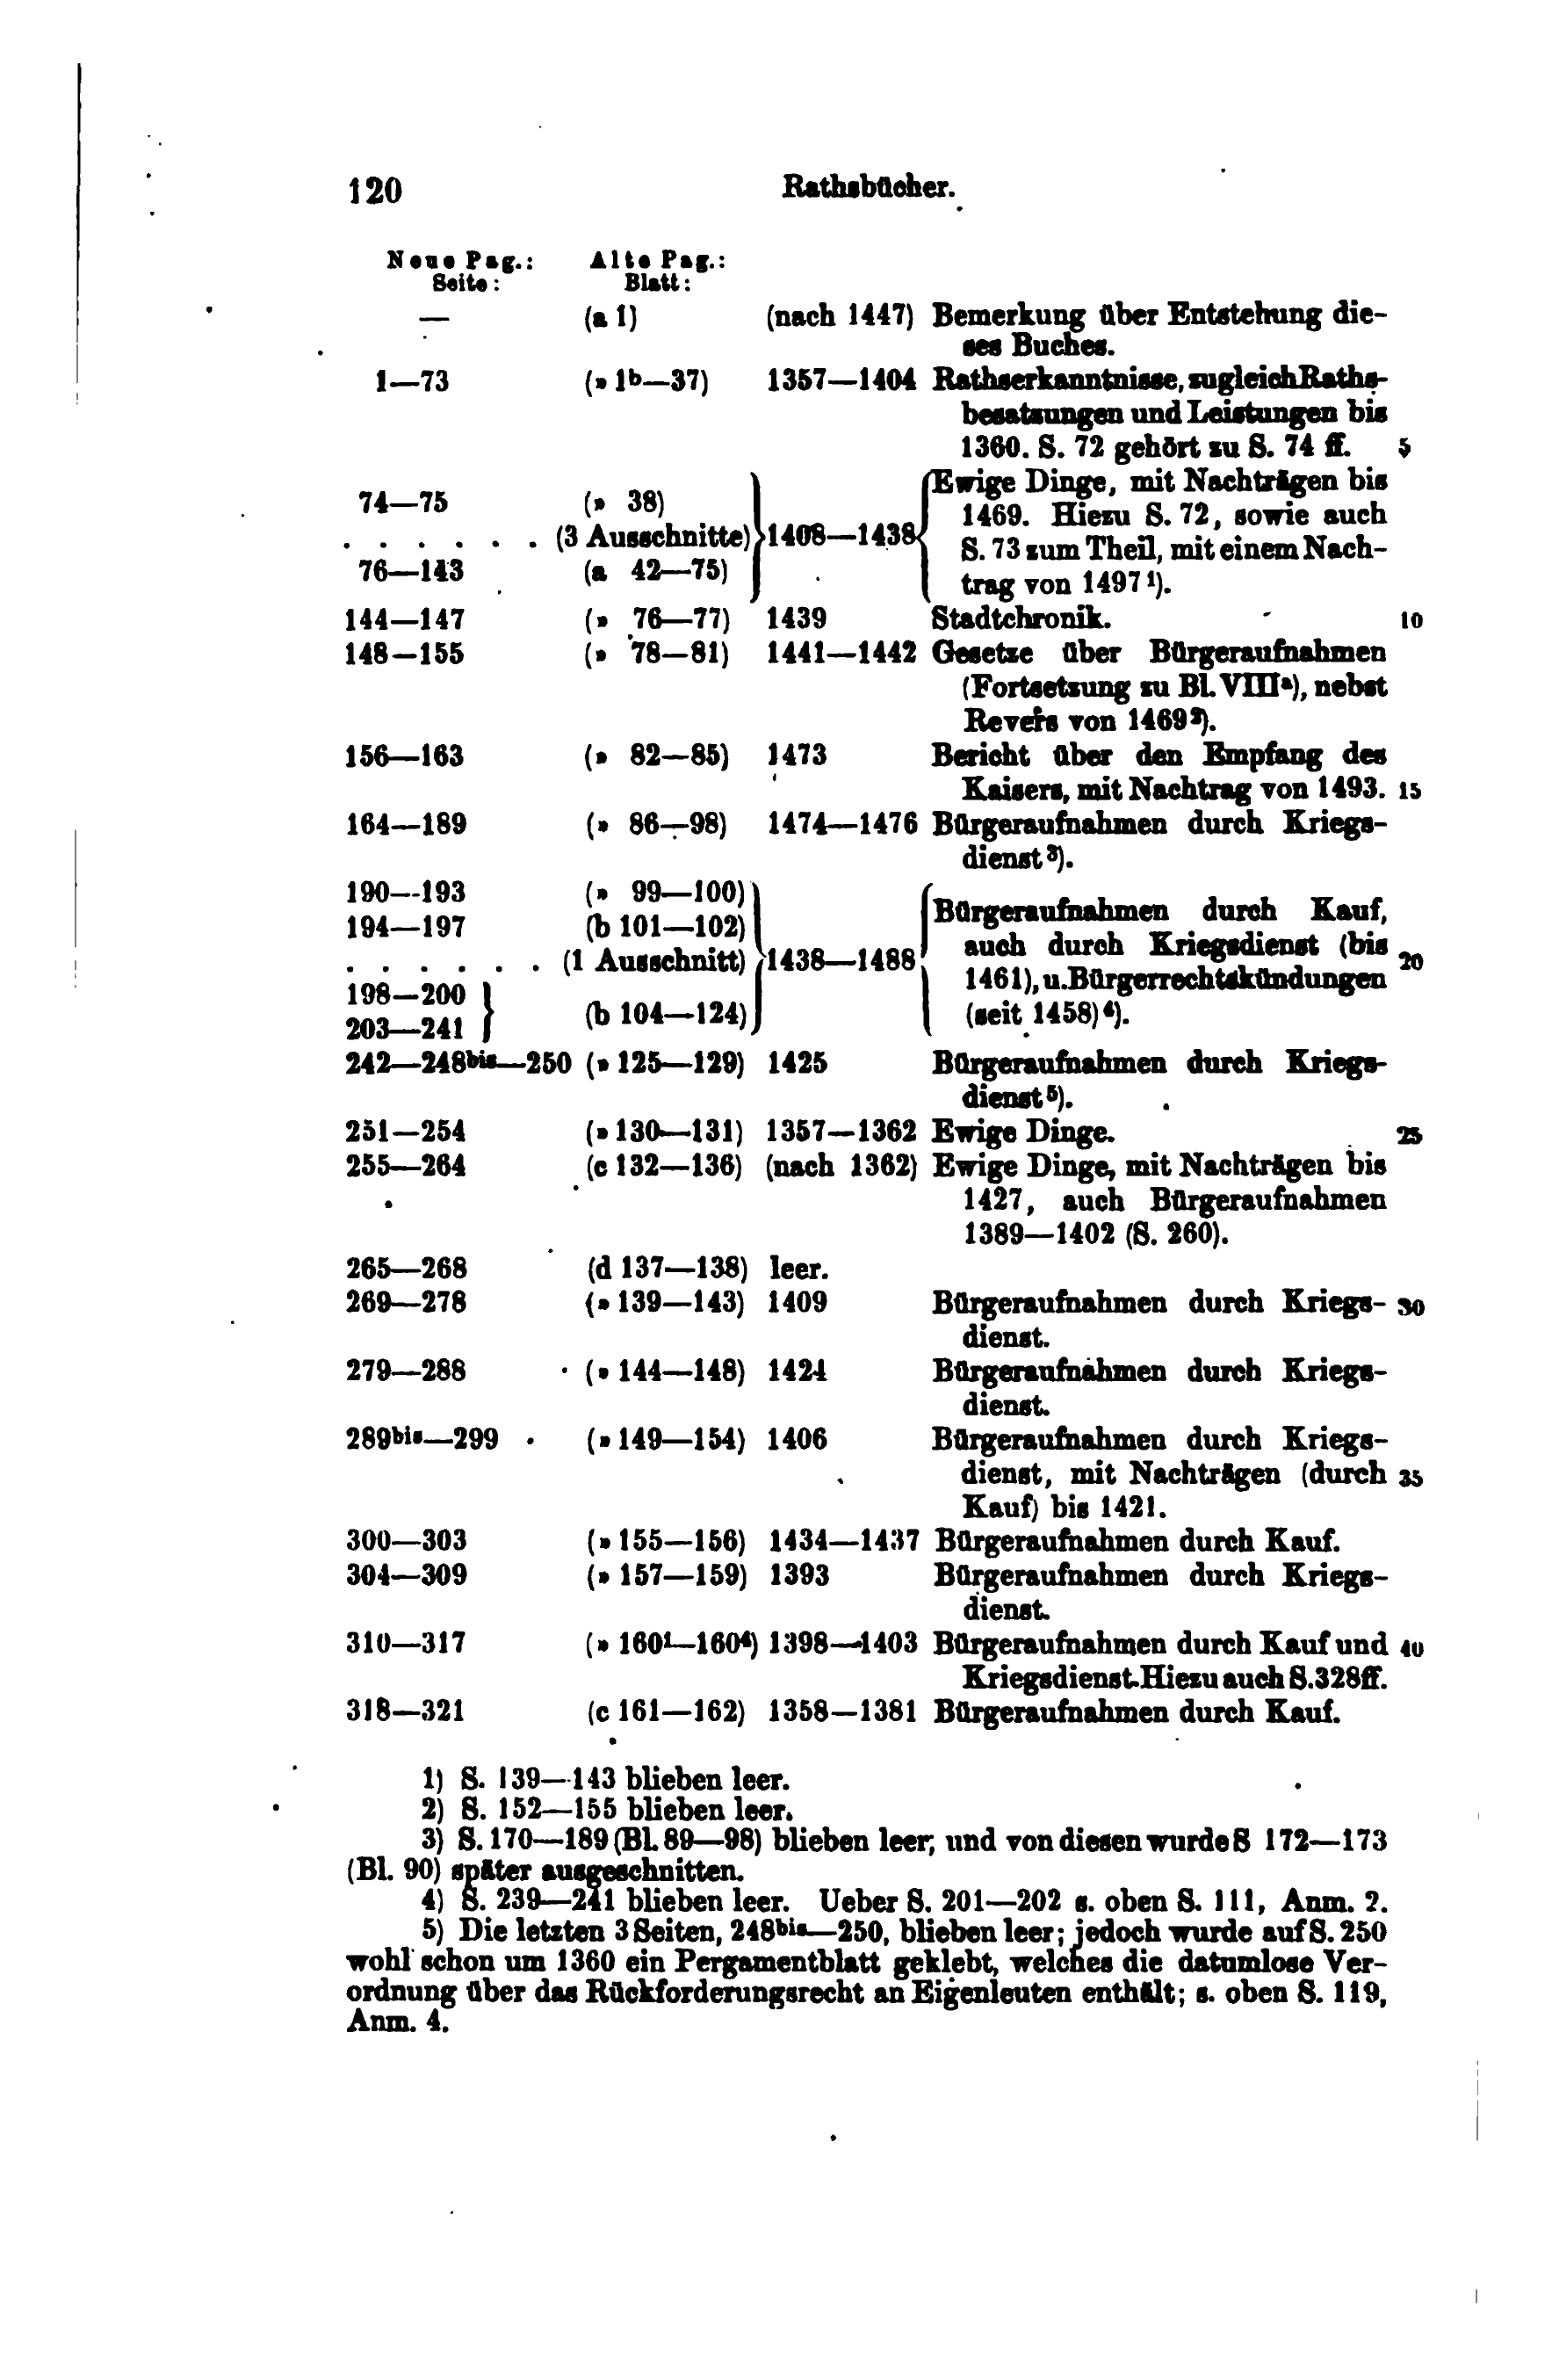 120 Rathsbücher.
Neue Pag.: Alte Pag.:
Seite: Blatt:
— (a 1) (nach 1447) Bemerkung über Entstehung die-
ses Buches.
1—73 (» 1b—37) 1357—1404 Rathserkanntnisse, zugleich Raths-
besatzungen und Leistungen bis
1360. S. 72 gehört zu S. 74 ff. 5
Ewige Dinge, mit Nachträgen bis
74—75 (» 38)
1469. Hiezu S. 72, sowie auch
. . . . . . (3 Ausschnitte) 1408—1438
S. 73 zum Theil, mit einem Nach-
76—143 (a 42—75)
trag von 1497¹).
144—147 (» 76—77) 1439 Stadtchronik. 10
148—155 (» 78—81) 1441—1442 Gesetze über Bürgeraufnahmen
(Fortsetzung zu Bl. VIIIa), nebst
Revers von 1469²).
156—163 (» 82—85) 1473 Bericht über den Empfang des
Kaisers, mit Nachtrag von 1493. 15
164—189 (» 86—98) 1474—1476 Bürgeraufnahmen durch Kriegs-
dienst³).
190—193 (» 99—100)
Bürgeraufnahmen durch Kauf,
194—197 (b 101—102)
auch durch Kriegsdienst (bis
. . . . . . (1 Ausschnitt) 1438—1488 20
1461), u. Bürgerrechtskündungen
198—200
(b 104—124) (seit 1458)⁴).
203—241
242—248bis—250 (» 125—129) 1425 Bürgeraufnahmen durch Kriegs-
dienst⁵).
251—254 (» 130—131) 1357—1362 Ewige Dinge. 25
255—264 (c 132—136) (nach 1362) Ewige Dinge, mit Nachträgen bis
1427, auch Bürgeraufnahmen
1389—1402 (S. 260).
265—268 (d 137—138) leer.
269—278 (» 139—143) 1409 Bürgeraufnahmen durch Kriegs- 30
dienst.
279—288 (» 144—148) 1424 Bürgeraufnahmen durch Kriegs-
dienst.
289bis—299 (» 149—154) 1406 Bürgeraufnahmen durch Kriegs-
dienst, mit Nachträgen (durch 35
Kauf) bis 1421.
300—303 (» 155—156) 1434—1437 Bürgeraufnahmen durch Kauf.
304—309 (» 157—159) 1393 Bürgeraufnahmen durch Kriegs-
dienst.
310—317 (» 160¹—160⁴) 1398—1403 Bürgeraufnahmen durch Kauf und 40
Kriegsdienst. Hiezu auch S. 328 ff.
318—321 (c 161—162) 1358—1381 Bürgeraufnahmen durch Kauf.
1) S. 139—143 blieben leer.
2) S. 152—155 blieben leer.
3) S. 170—189 (Bl. 89—98) blieben leer, und von diesen wurde S 172—173
(Bl. 90) später ausgeschnitten.
4) S. 239—241 blieben leer. Ueber S. 201—202 s. oben S. 111, Anm. 2.
5) Die letzten 3 Seiten, 248bis—250, blieben leer; jedoch wurde auf S. 250
wohl schon um 1360 ein Pergamentblatt geklebt, welches die datumlose Ver-
ordnung über das Rückforderungsrecht an Eigenleuten enthält; s. oben S. 119,
Anm. 4.